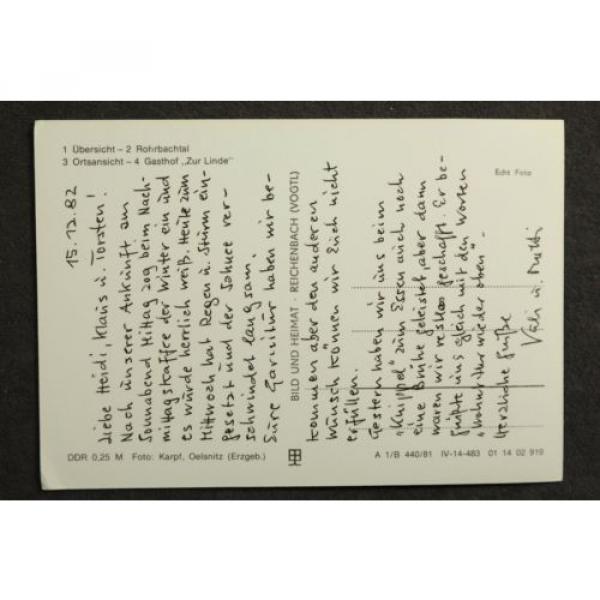 1 Übersicht – 2 Rohrbachtal
3 Ortsansicht – 4 Gasthof „Zur Linde"
Echt Foto
15.12.82
Liebe Heidi, Klaus u. Torsten!
Nach unserer Ankunft am
Sonnabend Mittag zog beim Nach-
mittagskaffee der Winter ein und
es wurde herrlich weiß. Heute zum
Mittwoch hat Regen u. Sturm ein-
gesetzt und der Schnee ver-
schwindet langsam.
Eure Garnitur haben wir be-
kommen aber den anderen
Wunsch können wir Euch nicht
erfüllen.
Gestern haben wir uns beim
zum Essen auch noch
eine Brühe geleistet, aber dann
waren wir restlos geschafft. Er be-
grüßte uns gleich mit den Worten
wieder oben".
Herzliche Grüße
u. Mutti
BILD UND HEIMAT · REICHENBACH (VOGTL)
DDR 0,25 M Foto: Karpf, Oelsnitz (Erzgeb.)
A 1/B 440/81 IV-14-483 01 14 02 919